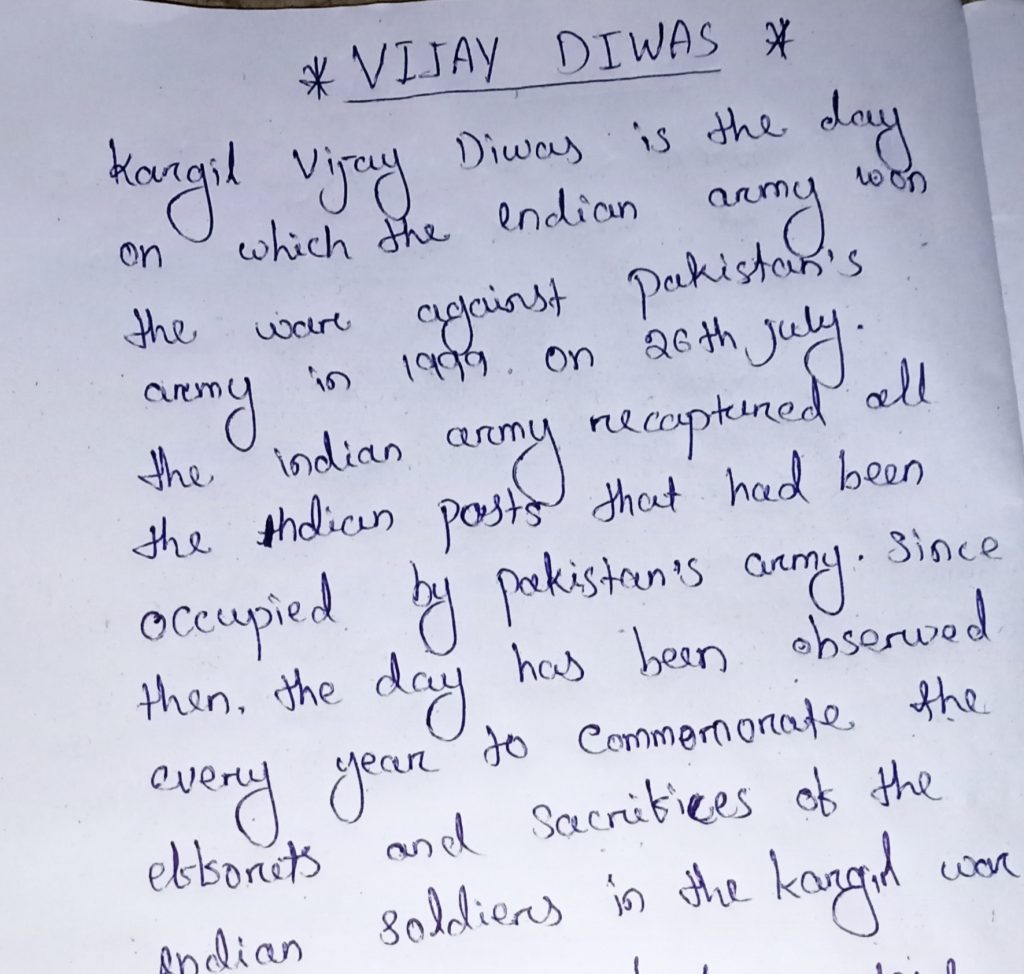 * VIJAY DIWAS *
Kargil Vijay Diwas is the day
on which the endian army won
the ware against pakistan's
army in 1999. on 26th july.
the indian army recaptured all
the indian posts that had been
occupied by pakistan's army. Since
then, the day has been observed
every year to commemorate the
efforts and sacrifices of the
indian soldiers in the kargil war